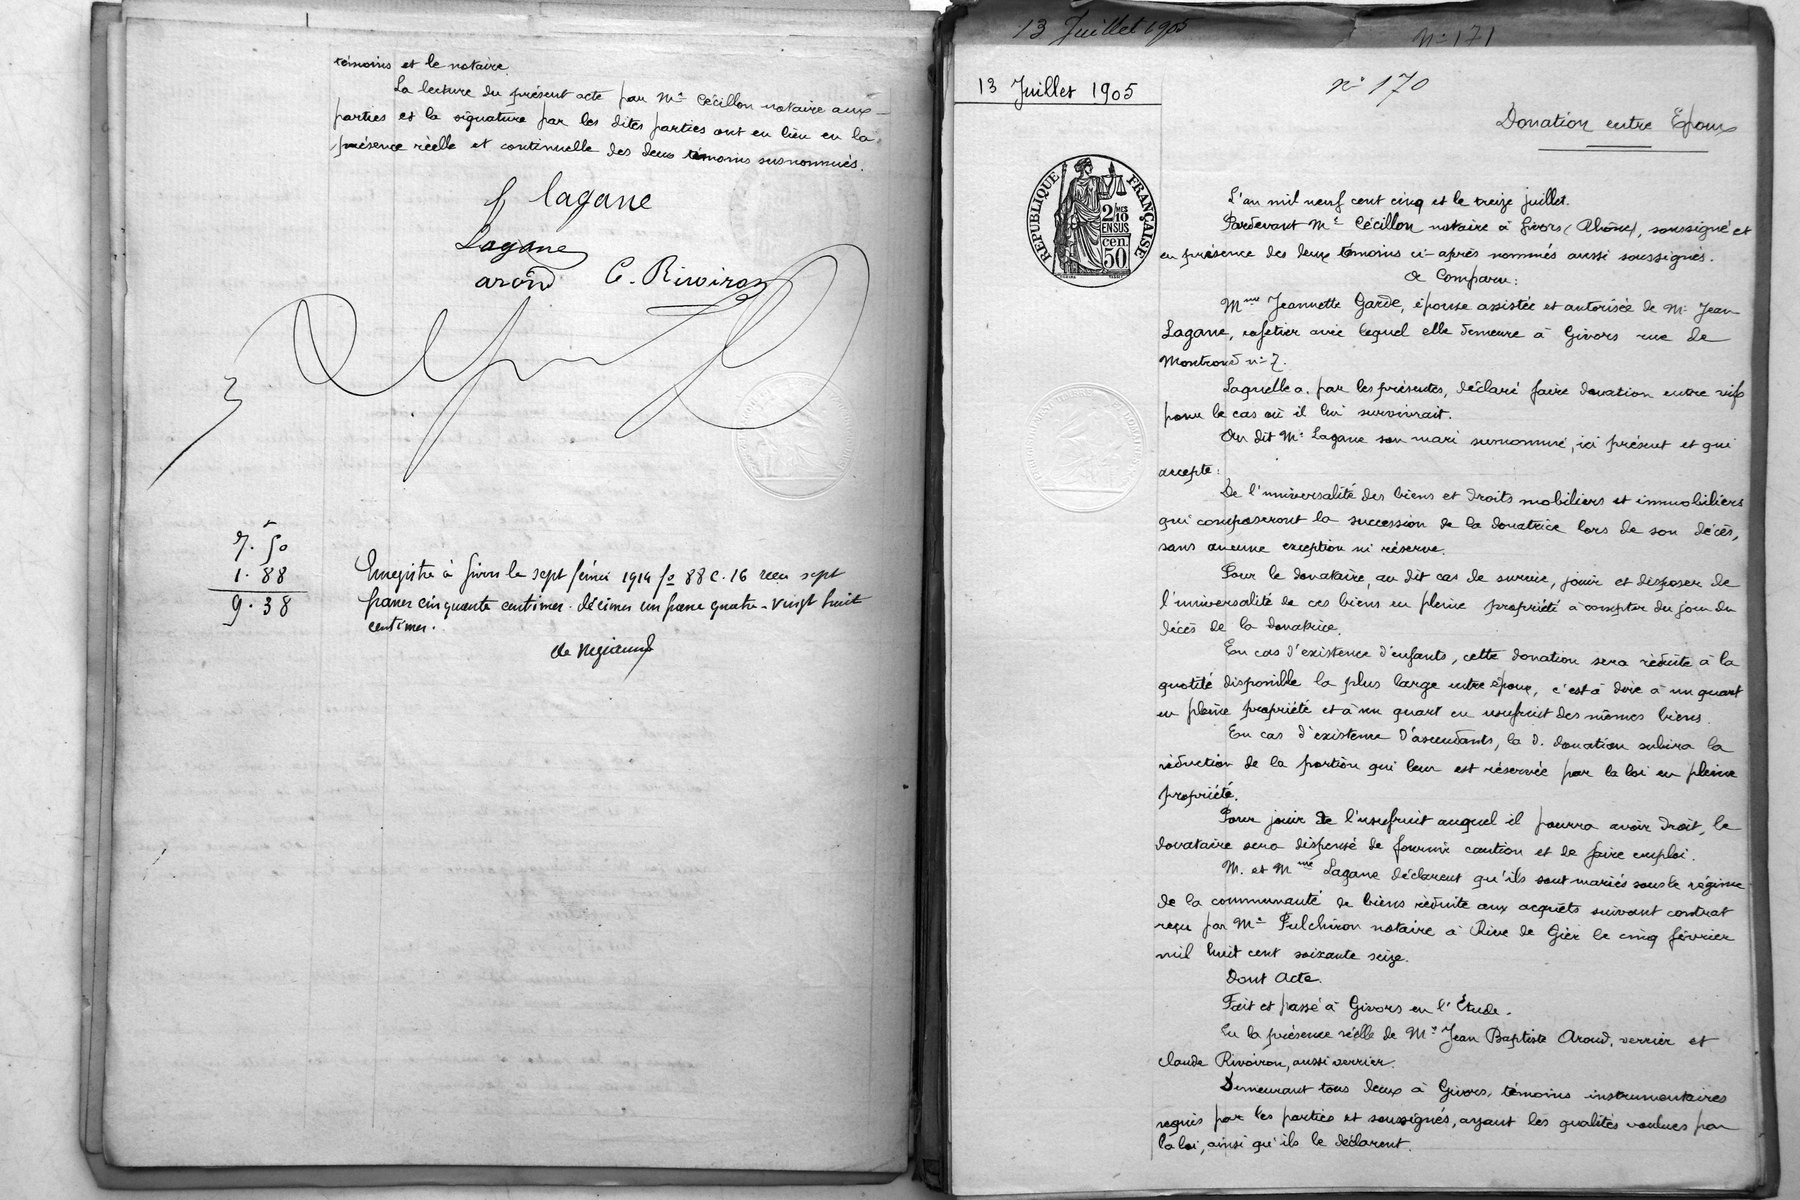 témoins et le notaire.
La lecture du présent acte par Me Cécillon notaire aux
parties et la signature par les dites parties ont eu lieu en la
présence réelle et continuelle des deux témoins susnommés.
lagane
Lagane
aroud C. Rivoiron
7. 50
1. 88
9. 38
Enregistré à Givors le sept février 1914 fo 88 c. 16 reçu sept
francs cinquante centimes. décimes un franc quatre-vingt huit
centimes.
13 Juillet 1905
N° 171
13 Juillet 1905
n° 170
Donation entre Epoux
REPUBLIQUE FRANÇAISE
2/10 MES
EN SUS
50 cen.
L'an mil neuf cent cinq et le treize juillet.
Pardevant Me Cécillon notaire à Givors (Rhône), soussigné et
en présence des deux témoins ci-après nommés aussi soussignés.
A Comparu:
Mme Jeannette Garde, épouse assistée et autorisée de Mr Jean
Lagane, cafetier avec lequel elle demeure à Givors rue de
Montrond n° 7.
Laquelle a, par les présentes, déclaré faire donation entre vifs
pour le cas où il lui survivrait.
Au dit Mr Lagane son mari surnommé, ici présent et qui
accepte:
De l'universalité des biens et droits mobiliers et immobiliers
qui composeront la succession de la donatrice lors de son décès,
sans aucune exception ni réserve.
Pour le donataire, au dit cas de survie, jouir et disposer de
l'universalité de ces biens en pleine propriété à compter du jour du
décès de la donatrice.
En cas d'existence d'enfants, cette donation sera réduite à la
quotité disponible la plus large entre époux, c'est à dire à un quart
en pleine propriété et à un quart en usufruit des mêmes biens.
En cas d'existence d'ascendants, la d. donation subira la
réduction de la portion qui leur est réservée par la loi en pleine
propriété.
Pour jouir de l'usufruit auquel il pourra avoir droit, le
donataire sera dispensé de fournir caution et de faire emploi.
M. et Mme Lagane déclarent qu'ils sont mariés sous le régime
de la communauté de biens réduite aux acquêts suivant contrat
reçu par Me Pulchiron notaire à Rive de Gier le cinq février
mil huit cent soixante seize.
Dont Acte.
Fait et passé à Givors en l'Étude.
En la présence réelle de Mrs Jean Baptiste Aroud, verrier et
Claude Rivoiron, aussi verrier.
Demeurant tous deux à Givors, témoins instrumentaires
requis par les parties et soussignés, ayant les qualités voulues par
la loi, ainsi qu'ils le déclarent.